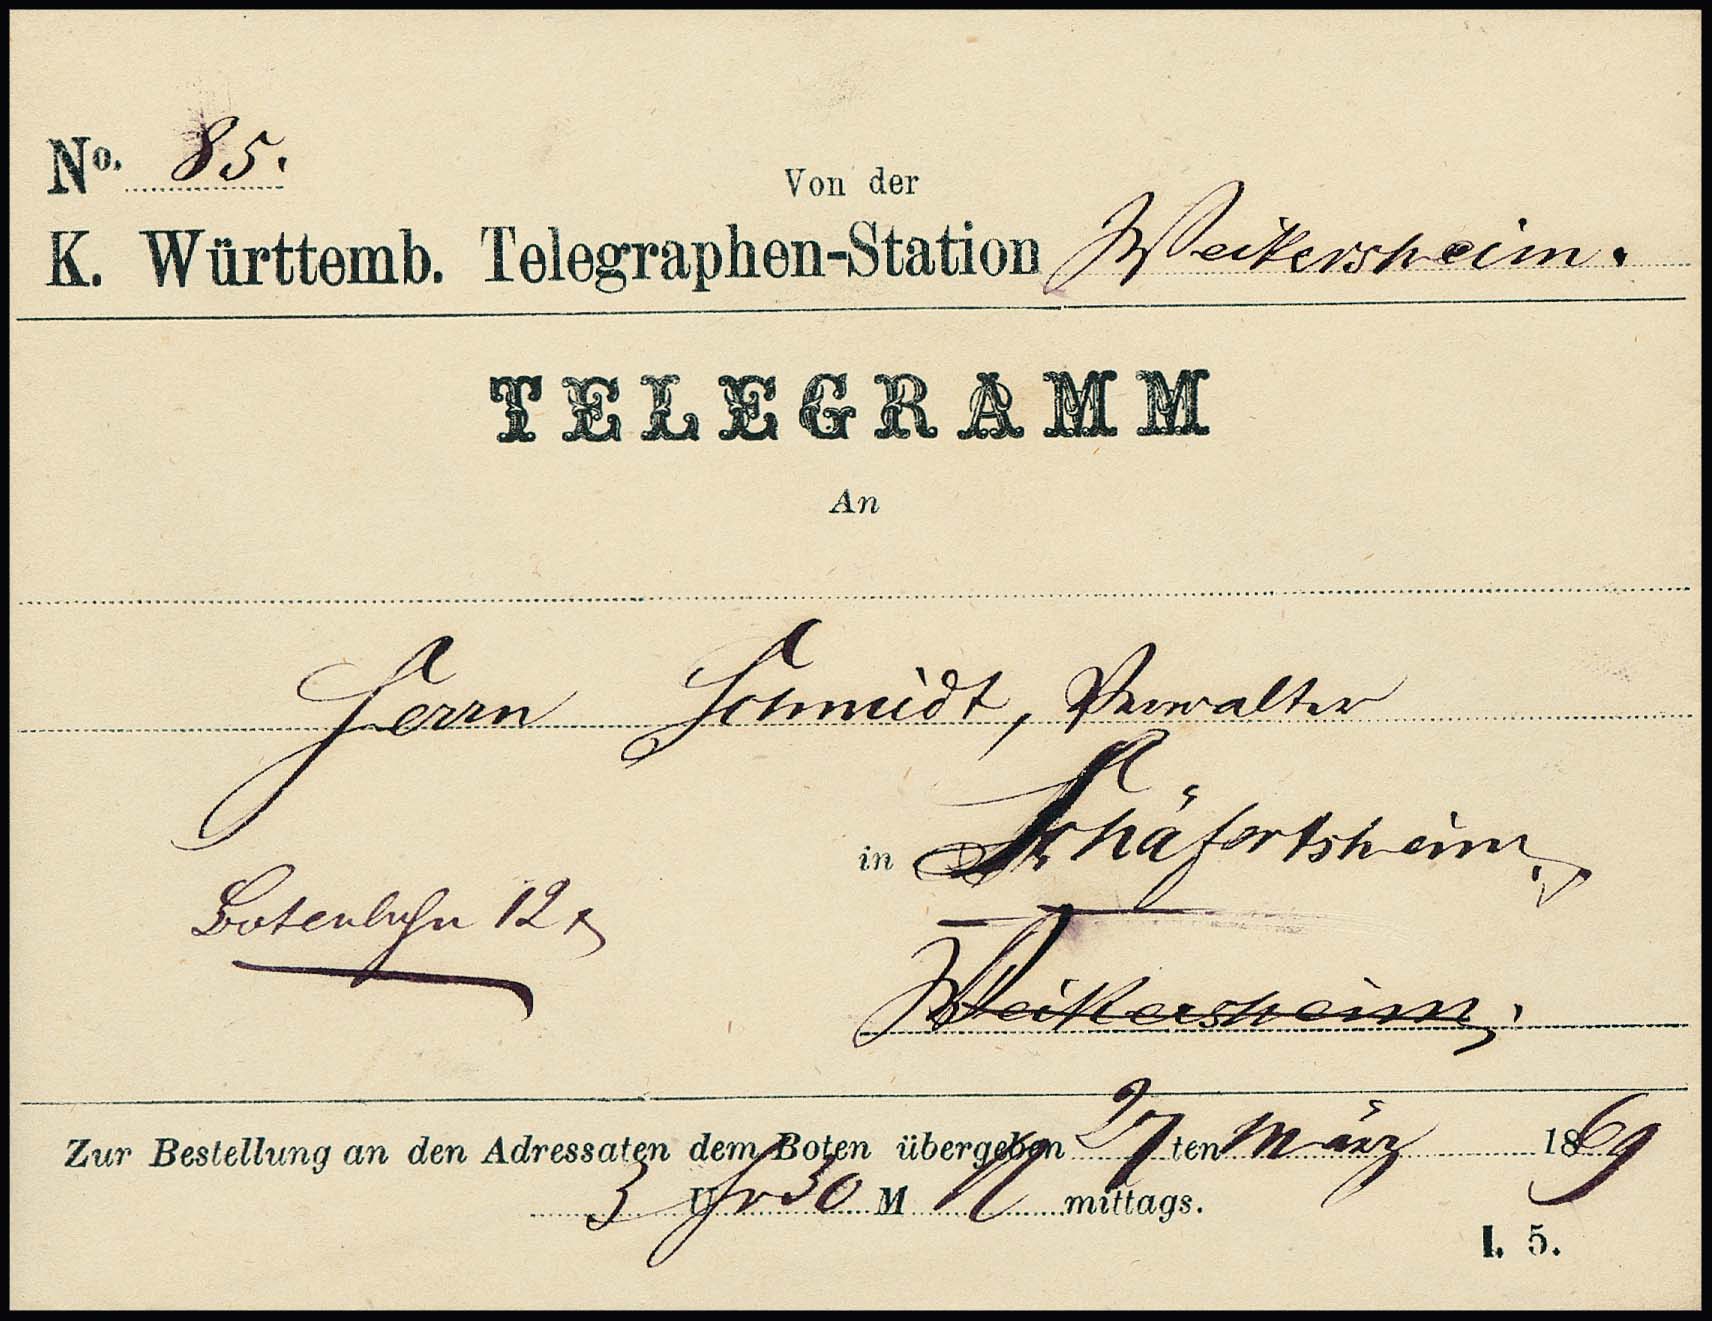 No. 85.
Von der
K. Württemb. Telegraphen-Station Weikersheim.
TELEGRAMM
An
Herrn Schmidt, Verwalter
in Schäfertsheim
Botenlohn 12 x
Weikersheim.
Zur Bestellung an den Adressaten dem Boten übergeben 27ten März 1869
3 Uhr 30 M N mittags.
I. 5.